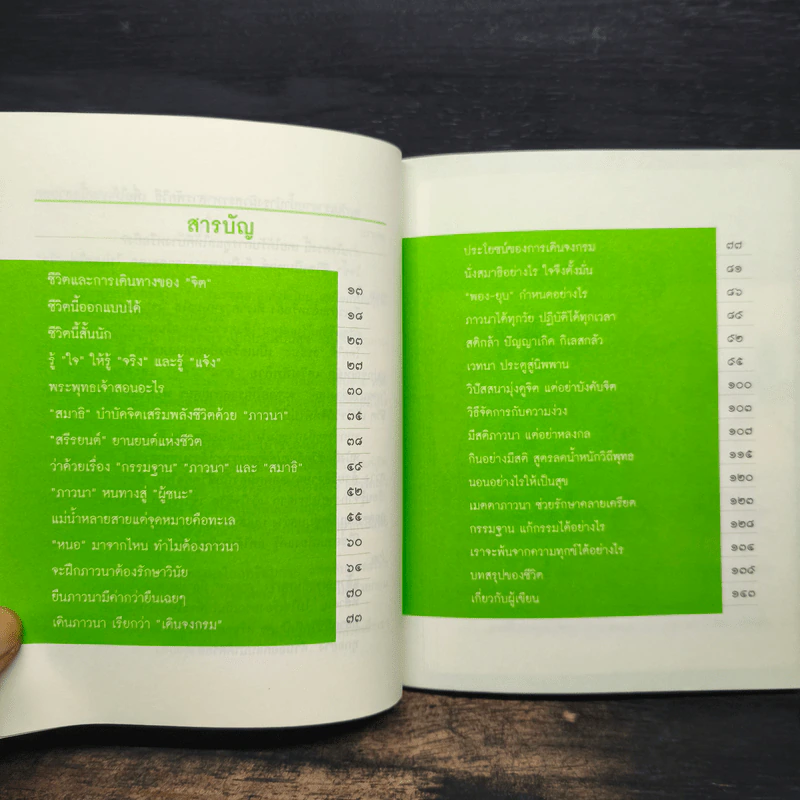 สารบัญ
ชีวิตและการเดินทางของ "จิต" ๑๓
ชีวิตนี้ออกแบบได้ ๑๘
ชีวิตนี้สั้นนัก ๒๓
รู้ "ใจ" ให้รู้ "จริง" และรู้ "แจ้ง" ๒๗
พระพุทธเจ้าสอนอะไร ๓๐
"สมาธิ" บำบัดจิตเสริมพลังชีวิตด้วย "ภาวนา" ๓๕
"สรีรยนต์" ยานยนต์แห่งชีวิต ๓๘
ว่าด้วยเรื่อง "กรรมฐาน" "ภาวนา" และ "สมาธิ" ๔๕
"ภาวนา" หนทางสู่ "ผู้ชนะ" ๕๒
แม่น้ำหลายสายแต่จุดหมายคือทะเล ๕๕
"หนอ" มาจากไหน ทำไมต้องภาวนา ๖๐
จะฝึกภาวนาต้องรักษาวินัย ๖๔
ยืนภาวนามีค่ากว่ายืนเฉยๆ ๗๐
เดินภาวนา เรียกว่า "เดินจงกรม" ๗๓
ประโยชน์ของการเดินจงกรม ๗๗
นั่งสมาธิอย่างไร ใจจึงตั้งมั่น ๘๑
"พอง-ยุบ" กำหนดอย่างไร ๘๖
ภาวนาได้ทุกวัย ปฏิบัติได้ทุกเวลา
สติกล้า ปัญญาเกิด กิเลสกลัว ๙๒
เวทนา ประตูสู่นิพพาน
วิปัสสนามุ่งดูจิต แต่อย่าบังคับจิต ๑๐๐
วิธีจัดการกับความง่วง ๑๐๓
มีสติภาวนา แต่อย่าหลงกล ๑๐๗
กินอย่างมีสติ สูตรลดน้ำหนักวิถีพุทธ ๑๑๕
นอนอย่างไรให้เป็นสุข ๑๒๐
เมตตาภาวนา ช่วยรักษาคลายเครียด ๑๒๓
กรรมฐาน แก้กรรมได้อย่างไร ๑๒๘
เราจะพ้นจากความทุกข์ได้อย่างไร
บทสรุปของชีวิต
เกี่ยวกับผู้เขียน ๑๔๓